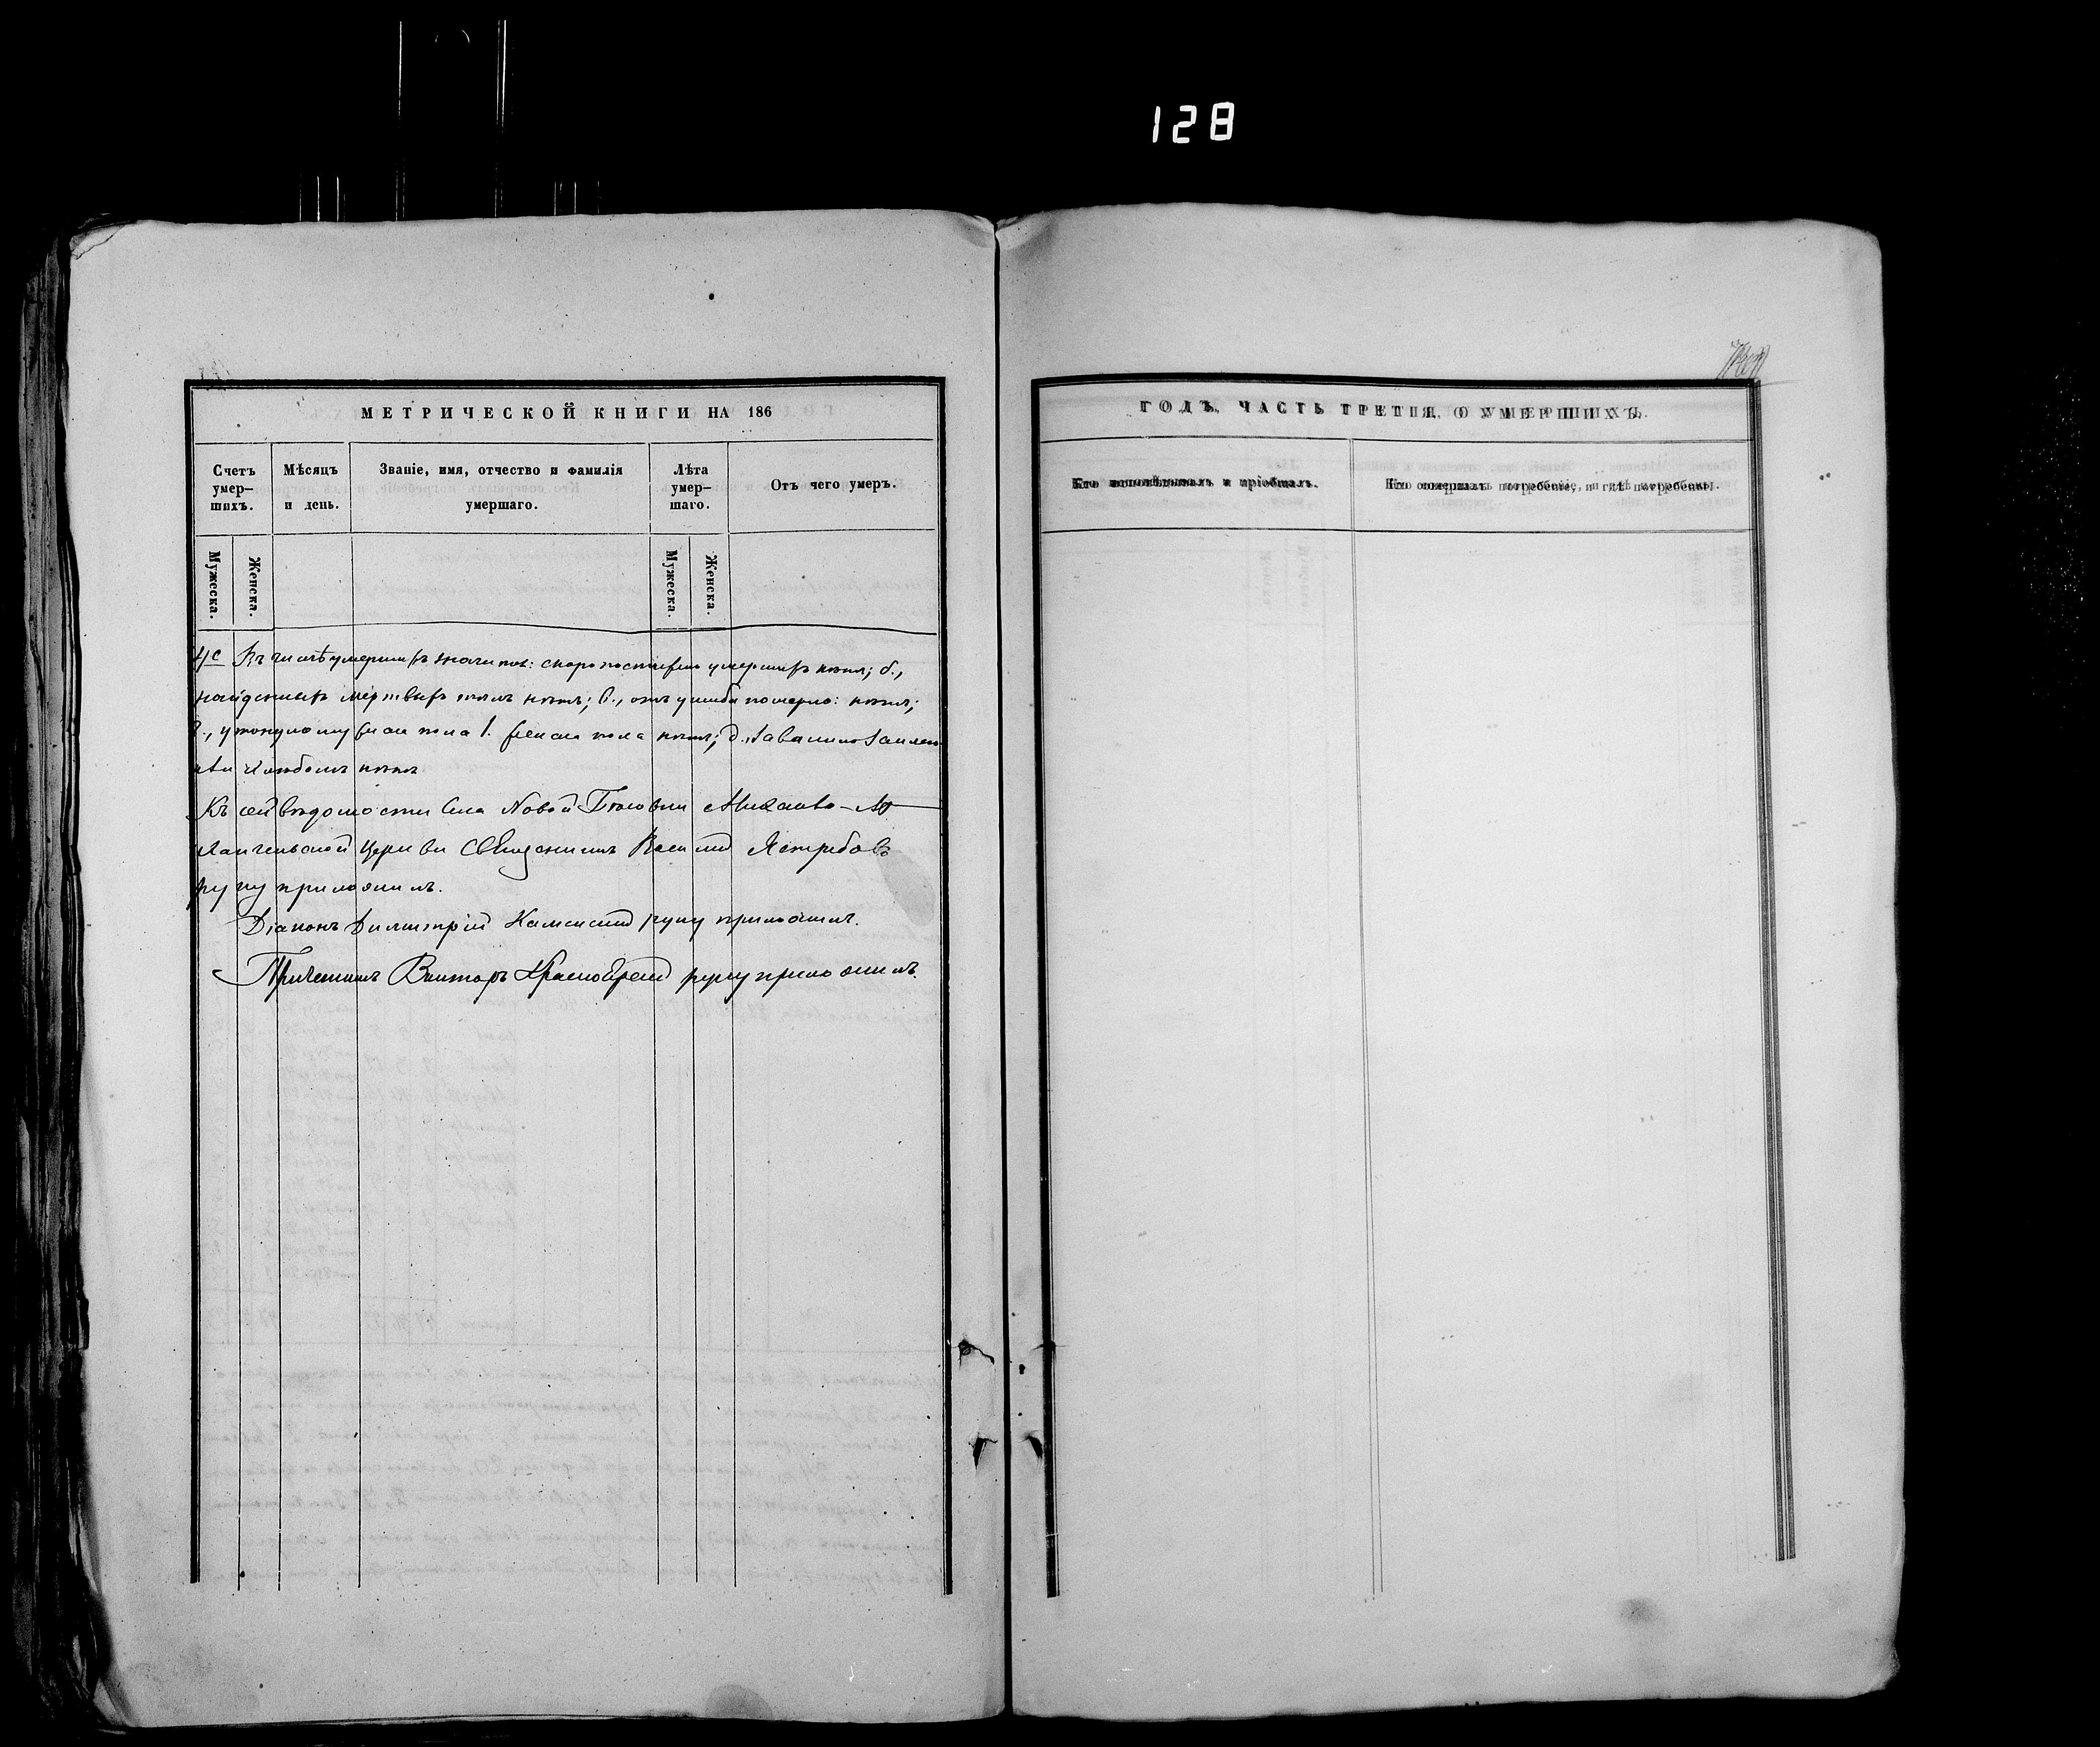 128
МЕТРИЧЕСКОЙ КНИГИ НА 186
Счетъ умер–шихъ.
Мѣсяцъ и день.
Званіе, имя, отчество и фамилія умершаго.
Лѣта умер–шаго.
Отъ чего умеръ.
Мужеска.
Женска.
Мужеска.
Женска.
Въ числѣ умершихъ значится: скоропостижно умершихъ нѣтъ; б.,
найденныхъ мертвыхъ тѣлъ нѣтъ; в., отъ ушиба померло: нѣтъ;
г., утонуло муж. пола 1. женска пола нѣтъ; д.,
нѣтъ
Къ сей вѣдомости села Новой Михаило-Ар
хангельской Церкви Священникъ Василій Ястребовъ
руку приложилъ.
Діаконъ Димитрій руку приложилъ.
Причетникъ Викторъ руку приложилъ.
ГОДЪ, ЧАСТЬ ТРЕТІЯ, О УМЕРШИХЪ.
Кто исповѣдывалъ и пріобщалъ.
Кто совершалъ погребеніе, и гдѣ погребены.